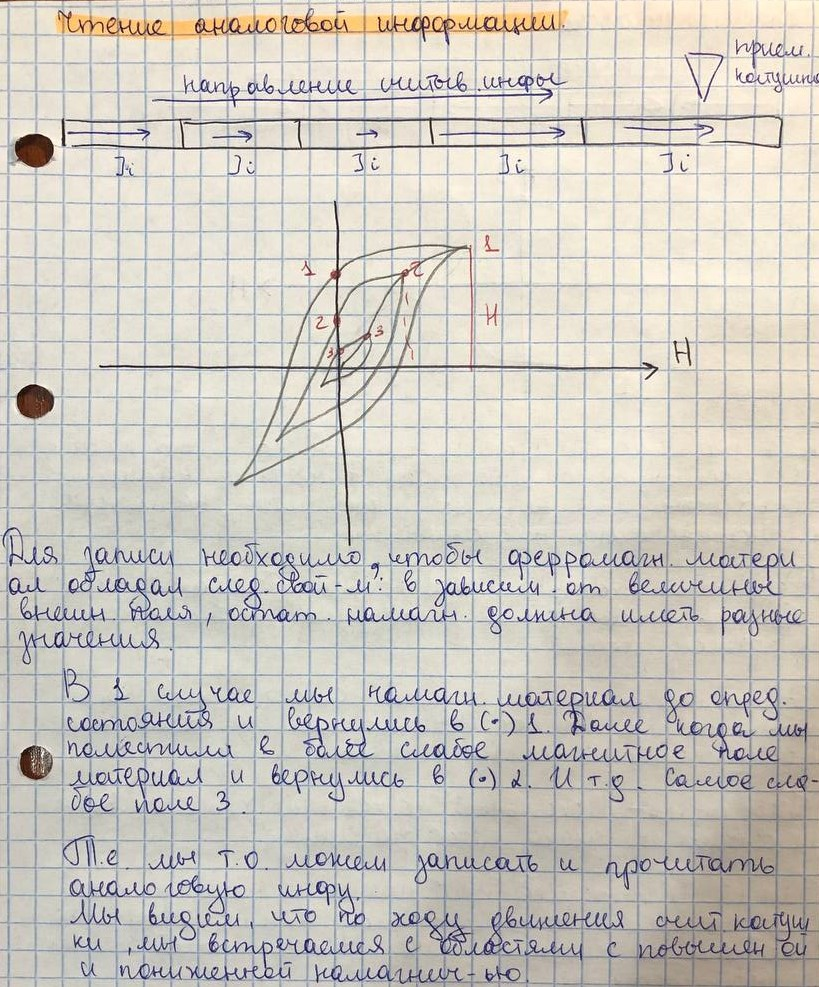 Чтение аналоговой информации.
прием.
катушка
направление считыв. инфы
Ji Ji Ji Ji Ji
1 1
2
2 H
3 3
H
Для записи необходимо, чтобы ферромагн. матери
ал обладал след. свой-м: в зависим. от величины
внешн. поля, остат. намагн. должна иметь разные
значения.
В 1 случае мы намагн. материал до опред.
состояния и вернулись в (•) 1. Далее когда мы
поместили в более слабое магнитное поле
материал и вернулись в (•) 2. И т.д. Самое сла-
бое поле 3.
Т.е. мы т.о. можем записать и прочитать
аналоговую инфу.
Мы видим, что по ходу движения счит катуш
ки, мы встречаемся с областями с повышен ой
и пониженной намагнич-ью.